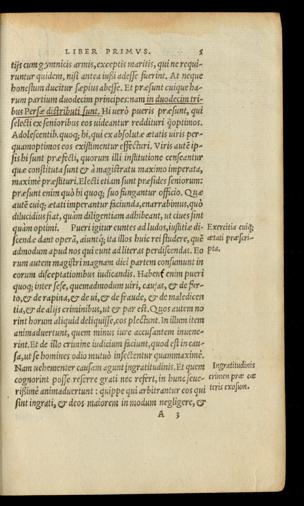 LIBER PRIMVS. 5
tijs cum gymnicis armis, exceptis maritis, qui ne requi-
runtur quidem, nisi antea iussi adesse fuerint. At neque
honestum ducitur sæpius abesse. Et præsunt cuique ha-
rum partium duodecim principes: nam in duodecim tri-
bus Persæ distributi sunt. Hi uerò pueris præsunt, qui
electi ex senioribus eos uideantur reddituri q̃optimos.
Adolescentib. quoq; hi, qui ex absolutæ ætatis uiris per-
quam optimos eos existimentur effecturi. Viris autē ip-
sis hi sunt præfecti, quorum illi institutione censeantur
quæ constituta sunt & à magistratu maximo imperata,
maximè præstituri. Electi etiam sunt præsides seniorum:
præsunt enim quò hi quoq; suo fungantur officio. Quæ
autē cuiq; ætati imperantur facienda, enarrabimus, quò
dilucidius fiat, quàm diligentiam adhibeant, ut ciues sint
quàm optimi. Pueri igitur euntes ad ludos, iustitiæ di-
scendæ dant operā, aiuntq; ita illos huic rei studere, quē
admodum apud nos qui eunt ad literas perdiscendas. Eo
rum autem magistri magnam diei partem consumunt in
eorum disceptationibus iudicandis. Habent enim pueri
quoq; inter sese, quemadmodum uiri, causas, & de fur-
to, & de rapina, & de ui, & de fraude, & de maledicen
tia, & de alijs criminibus, ut & par est. Quos autem no
rint horum aliquid deliquisse, eos plectunt. In illum item
animaduertunt, quem minus iure accusantem inuene-
rint. Et de illo crimine iudicium faciunt, quod est in cau-
sa, ut se homines odio mutuò insectentur quammaximè.
Nam uehementer causam agunt ingratitudinis. Et quem
cognorint posse referre grati nec refert, in hunc seue-
rissimè animaduertunt: quippe qui arbitrantur eos qui
sint ingrati, & deos maiorem in modum negligere, &
A 3
Exercitia cuiq;
ætati præscri-
pta.
Ingratitudinis
crimen præ cæ
teris exosum.